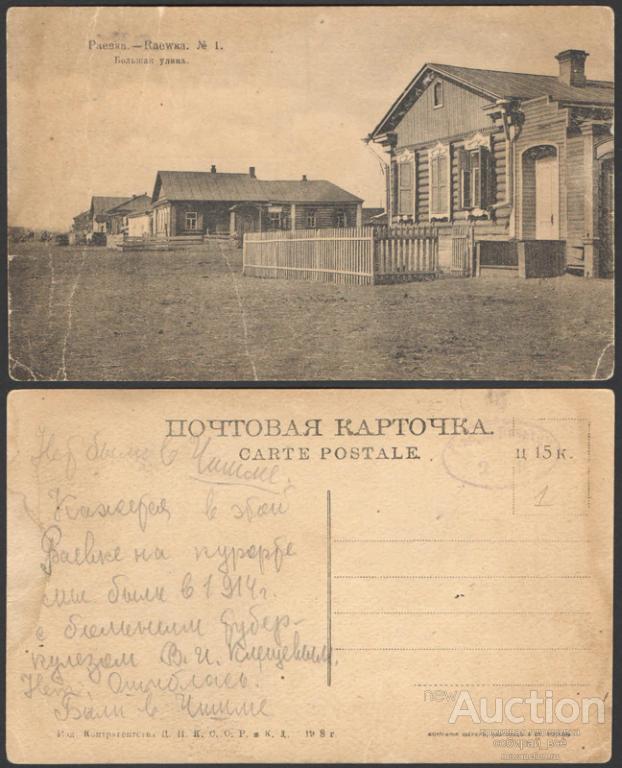 Раевка.—Raewка. № 1.
Большая улица.
ПОЧТОВАЯ КАРТОЧКА.
CARTE POSTALE.
ц 15 к.
2
1
Нет были в Чишме.
Кажется в этой
Раевке на курорте
мы были в 1914 г.
с больным тубер-
кулезом В. И. Клещевым.
Нет, Ошиблась.
Были в Чишме
Изд. Контрагентства П. П. К. С. О. Р. и К. Д. 1908 г.
new Auction